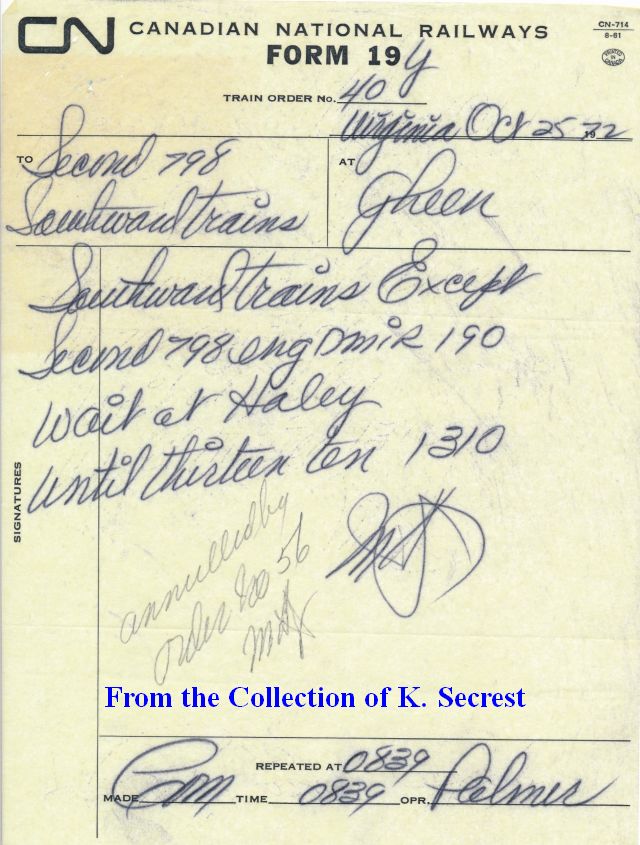 CN CANADIAN NATIONAL RAILWAYS
CN-714
8-61
PRINTED IN CANADA
FORM 19 Y
TRAIN ORDER No. 40
Virginia Oct 25 1972
TO Second 798
Southward trains
AT Gheen
Southward trains Except
Second 798 eng DMIR 190
wait at Haley
until thirteen ten 1310
SIGNATURES
annulled by
order No 56
From the Collection of K. Secrest
REPEATED AT 0839
MADE Com TIME 0839 OPR. Palmer